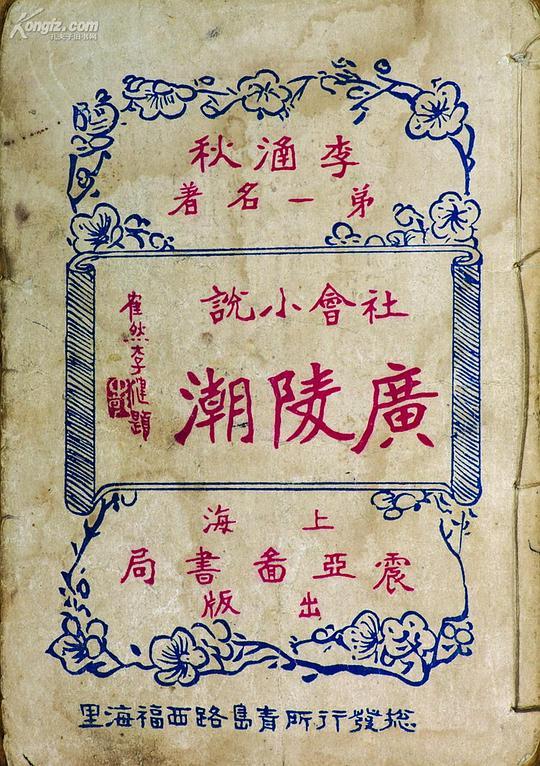 Kongfz.com
孔夫子旧书网
李涵秋
弟一名著
社會小說
廣陵潮
隺然李健題
上海
震亞啚書局
出版
総發行所青島路西福海里